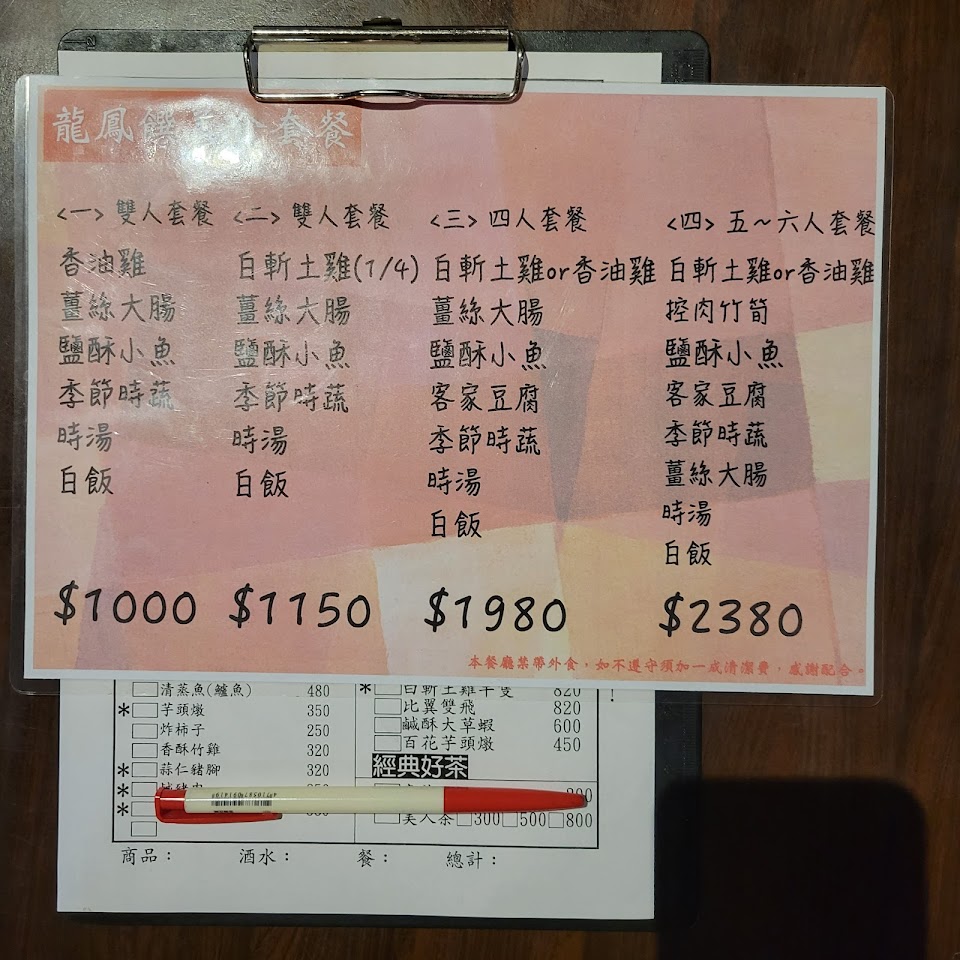 龍鳳饌 套餐
<一> 雙人套餐
香油雞
薑絲大腸
鹽酥小魚
季節時蔬
時湯
白飯
$1000
<二> 雙人套餐
白斬土雞(1/4)
薑絲大腸
鹽酥小魚
季節時蔬
時湯
白飯
$1150
<三> 四人套餐
白斬土雞or香油雞
薑絲大腸
鹽酥小魚
客家豆腐
季節時蔬
時湯
白飯
$1980
<四> 五~六人套餐
白斬土雞or香油雞
控肉竹筍
鹽酥小魚
客家豆腐
季節時蔬
薑絲大腸
時湯
白飯
$2380
本餐廳禁帶外食，如不遵守須加一成清潔費，感謝配合。
清蒸魚(鱸魚) 480
*芋頭燉 350
炸柿子 250
香酥竹雞 320
*蒜仁豬腳 320
*
*
*白斬土雞半隻 820
比翼雙飛 820
鹹酥大草蝦 600
百花芋頭燉 450
經典好茶
美人茶 □300 □500 □800
商品： 酒水： 餐： 總計：